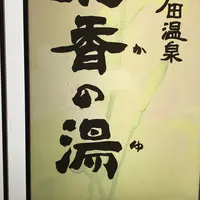 田温泉
香の湯
か
ゆ